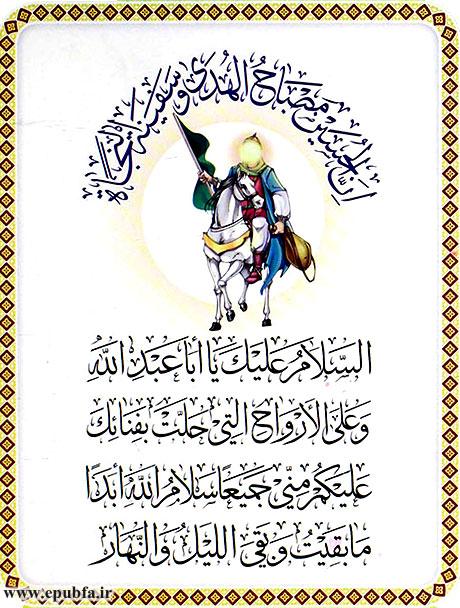 اِنَّ الْحُسَیْن مِصْبَاحُ الْهُدَی وَ سَفِینَةُ النَّجَاة
السَّلَامُ عَلَيْكَ يَا أَبَا عَبْدِ اللَّهِ
وَعَلَى الْأَرْوَاحِ الَّتِي حَلَّتْ بِفِنَائِكَ
عَلَيْكُمْ مِنِّي جَمِيعًا سَلَامُ اللَّهِ أَبَدًا
مَا بَقِيتُ وَبَقِيَ اللَّيْلُ وَالنَّهَارُ
www.epubfa.ir